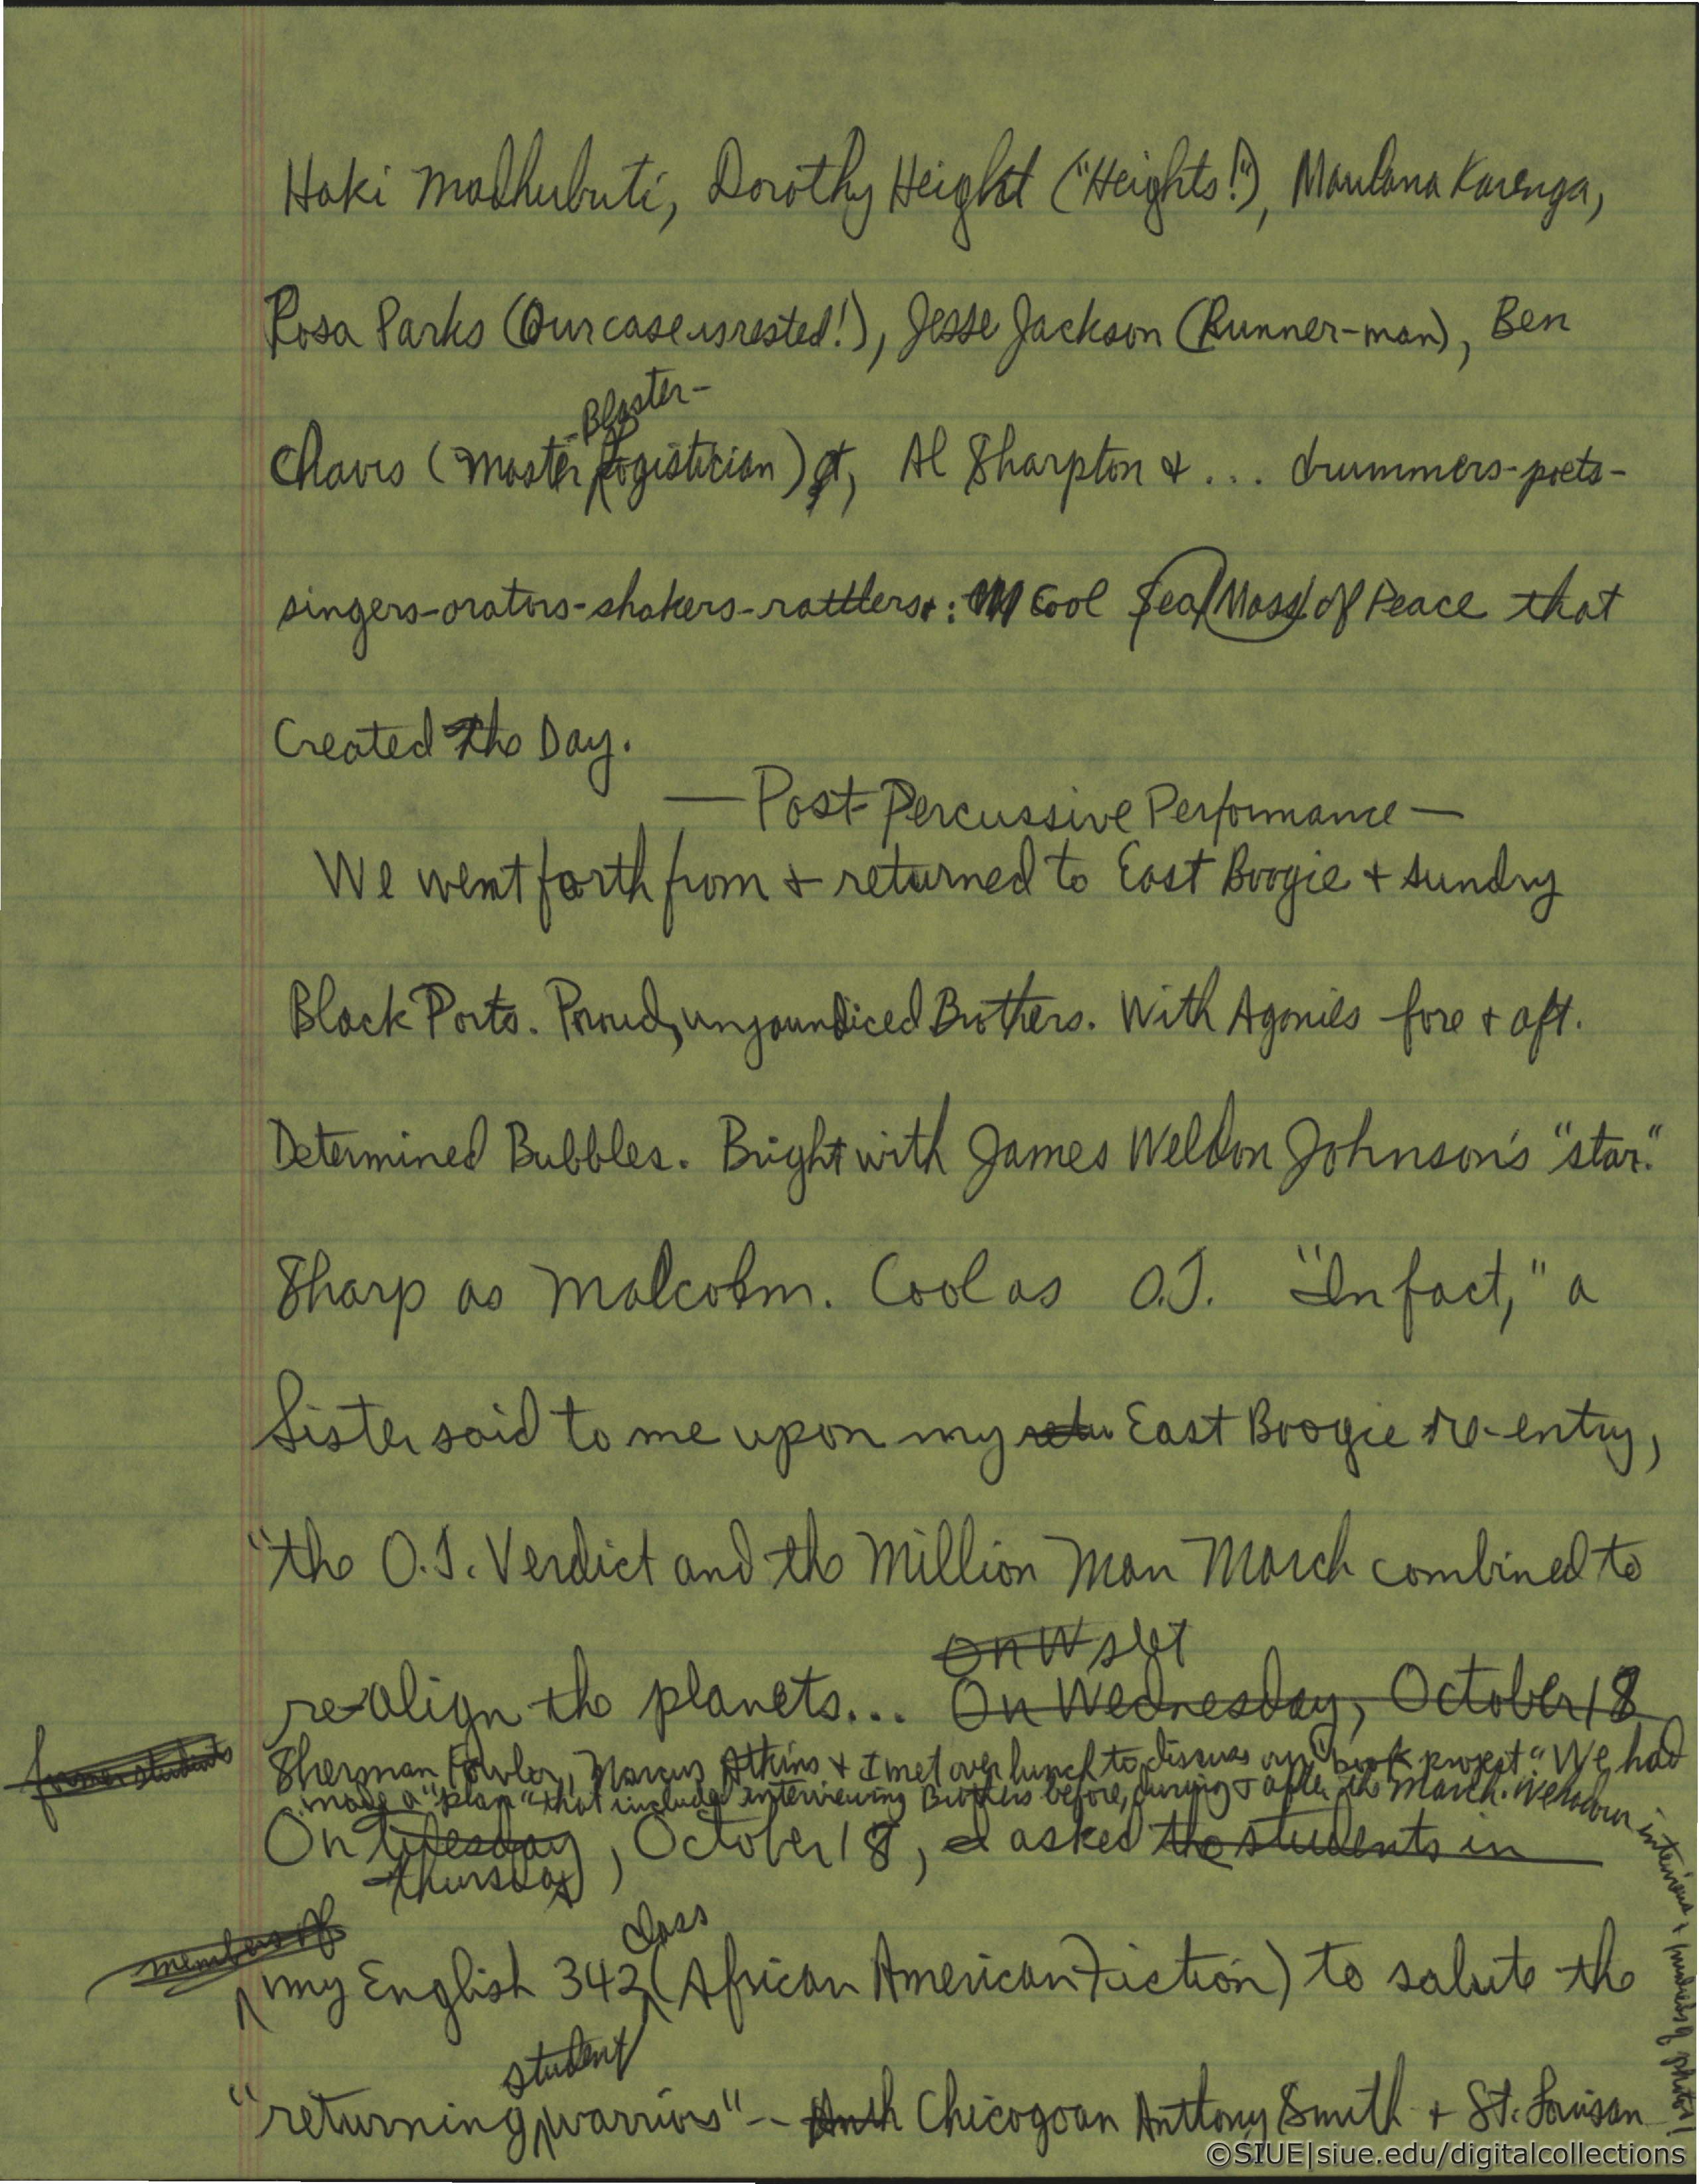 Haki Madhubuti, Dorothy Height ("Heights!"), Maulana Karenga,
Rosa Parks (Our case is rested!), Jesse Jackson (Runner-man), Ben
-Blaster-
Chavis (Master Logistician), Al Sharpton & ... drummers-poets-
singers-orators-shakers-rattlers: Cool Sea Mass of Peace that
Created the Day.
— Post-Percussive Performance —
We went forth from & returned to East Boogie & sundry
Black Ports. Proud, unjaundiced Brothers. With Agonies fore & aft.
Determined Bubbles. Bright with James Weldon Johnson's "star."
Sharp as Malcolm. Cool as O.J. "In fact," a
Sister said to me upon my retu East Boogie re-entry,
"the O.J. Verdict and the Million Man March combined to
On W
re-align the planets... On Wednesday, October 18
former students
Sherman Fowler, Marcus Atkins & I met over lunch to discuss our "book project." We had
made a "plan" that included interviewing Brothers before, during & after the March. We have our interviews &
On Tuesday, October 18, I asked the students in
Thursday
members of
class
my English 342 (African American Fiction) to salute the
student
"returning warriors" -- Anth Chicagoan Anthony Smith & St. Louisan
©SIUE|siue.edu/digitalcollections